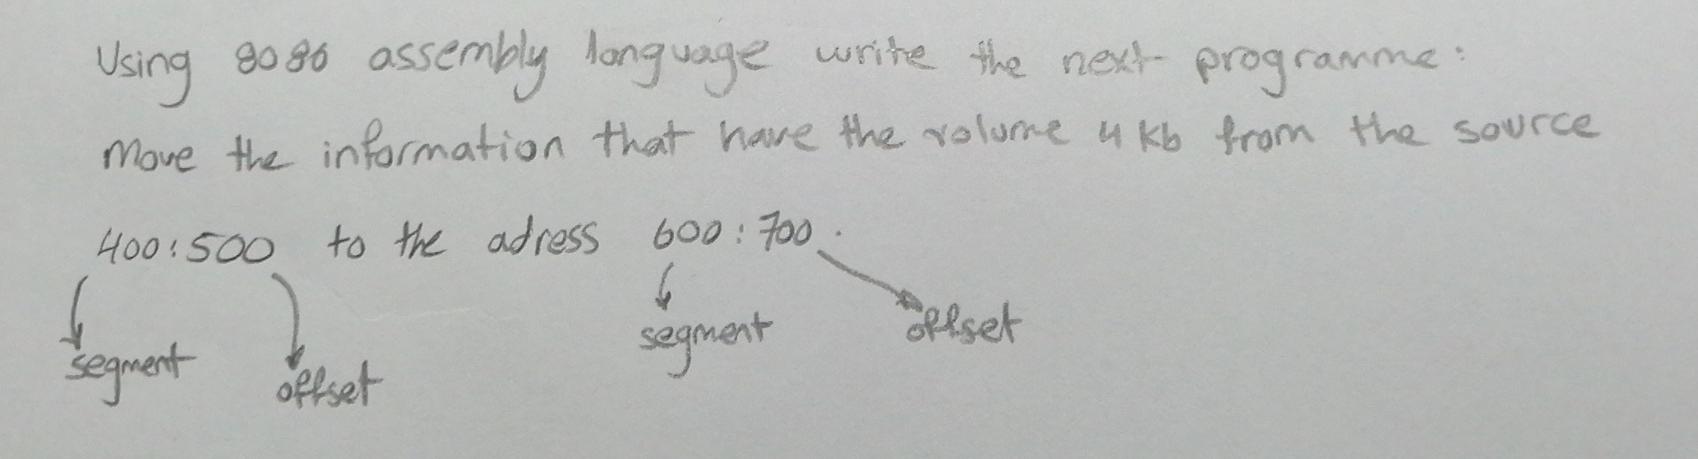 Using 8086 assembly language write the next programme:
Move the information that have the volume 4 kb from the source
400:500 to the adress 600:700.
segment offset segment offset